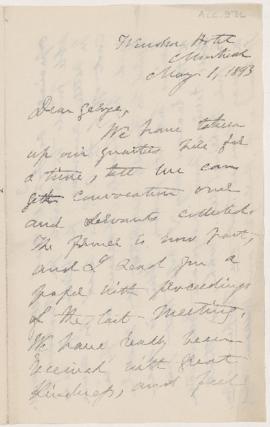 Windsor Hotel
Montreal
May 1, 1893
Dear George,
We have taken
up our quarters here for
a time, till we can
get convocation over
and servants collected.
The former is now past,
and I send you a
paper with proceedings
of the last meeting.
We have really been
received with great
kindness, and feel